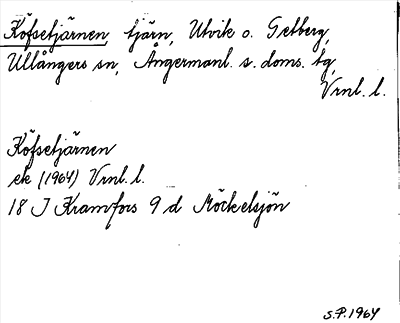 Köfsetjärnen, tjärn, Utvik o. Getberg,
Ullångers sn, Ångermanl. s. doms. tg,
Vrnl. l.
Köfsetjärnen
ek (1964) Vrnl. l.
18 J Kramfors 9 d Möckelsjön
S.P. 1964